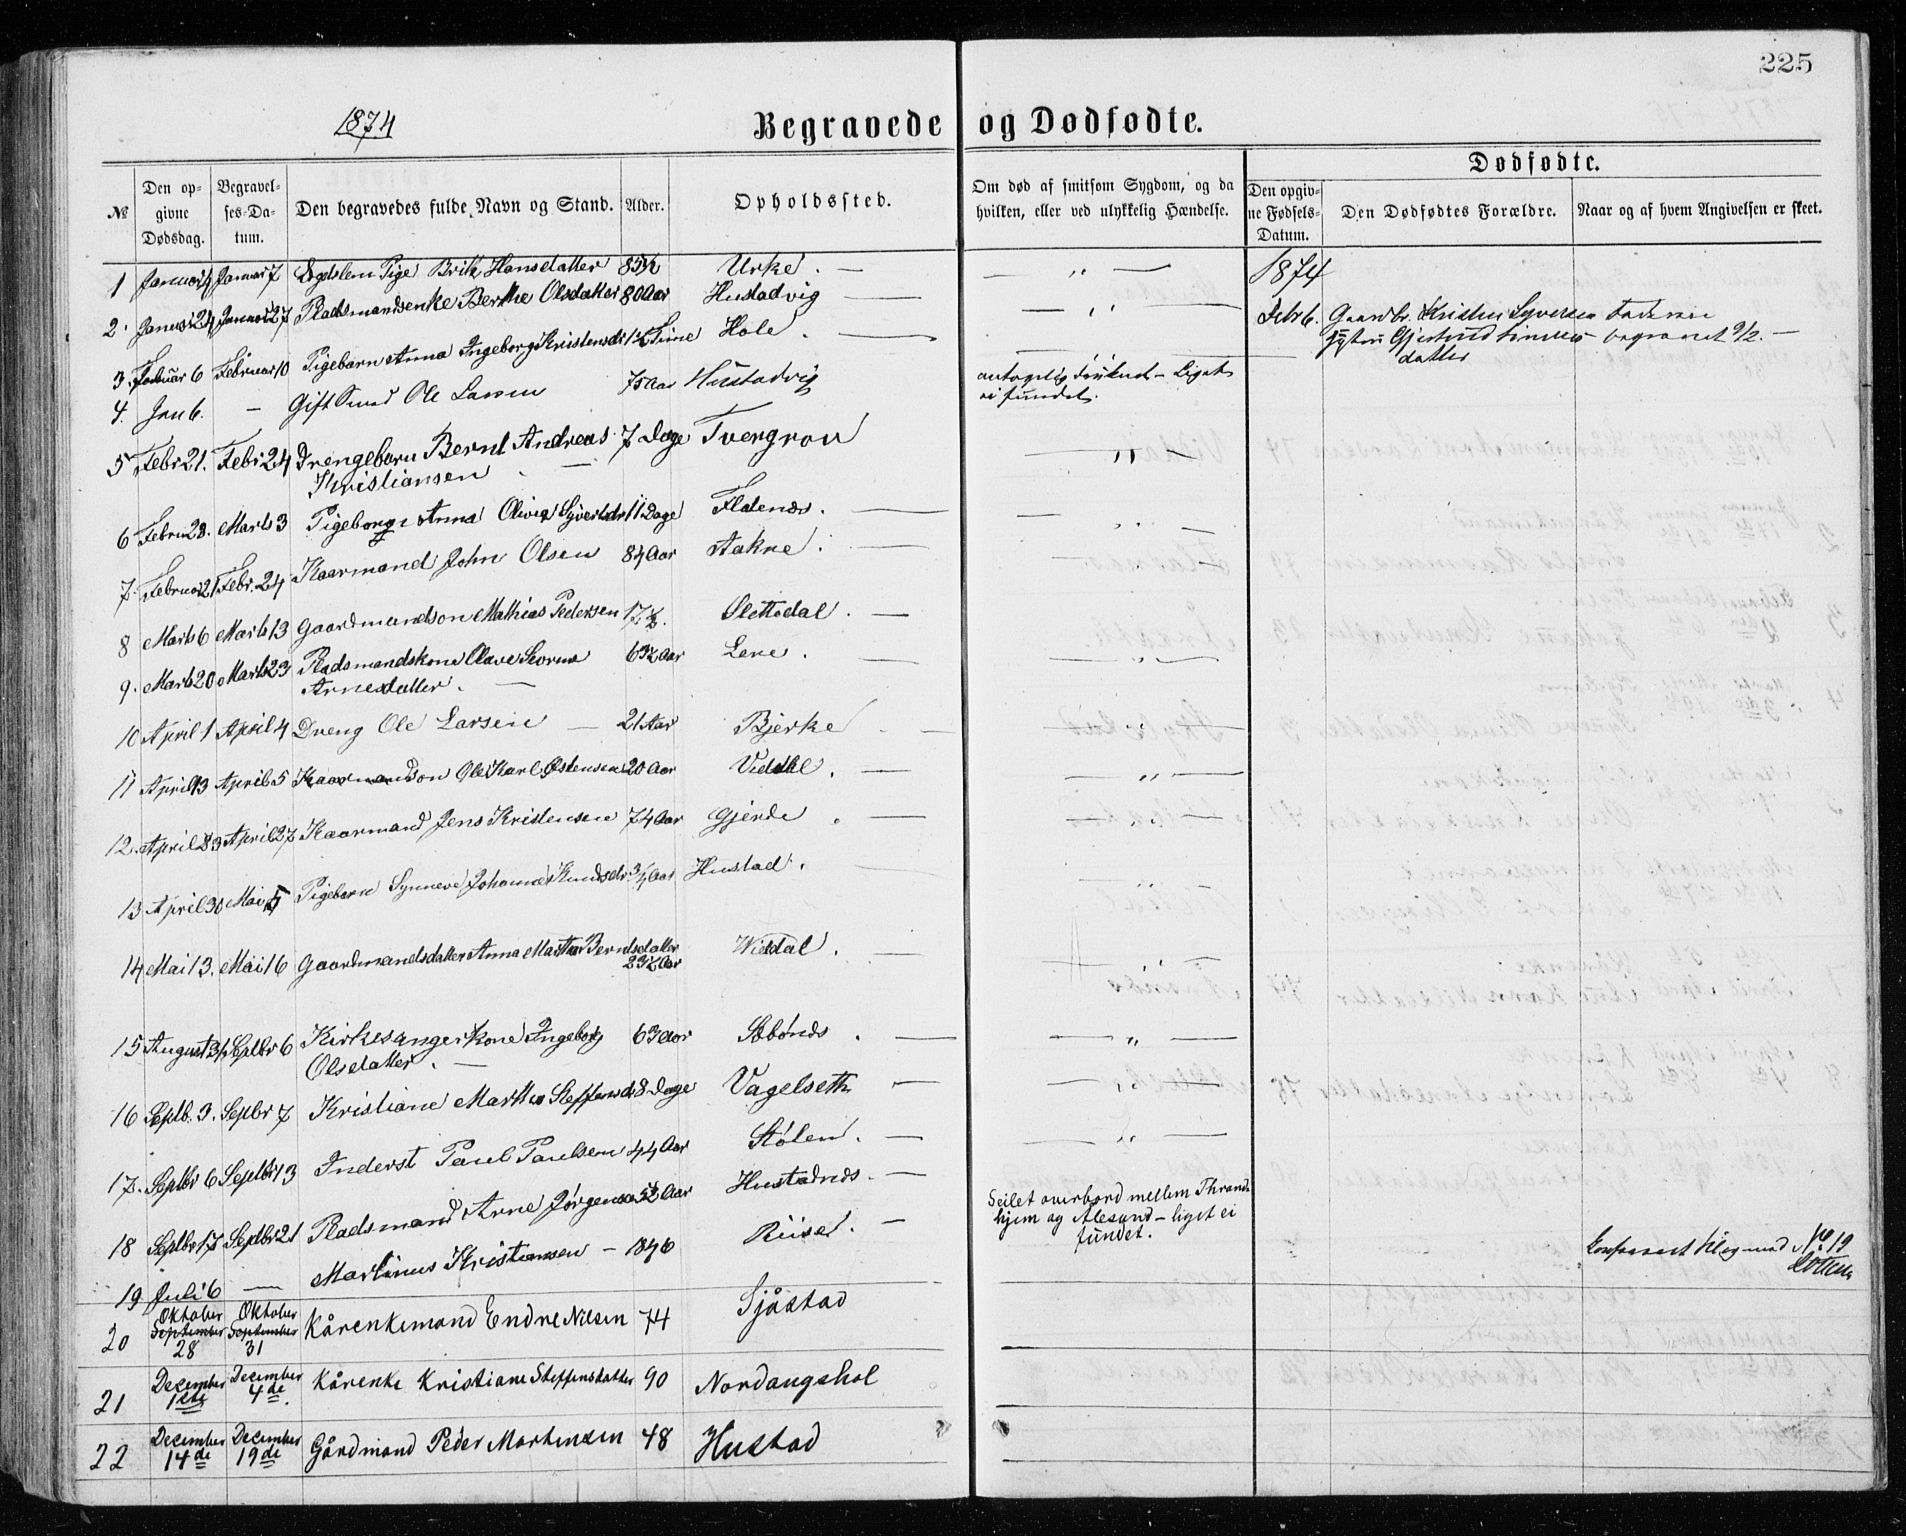 225
1874
Begravede og Dødfødte.
Dødfødte.
№ Den opgivne Dødsdag. Begravelses-Datum. Den begravedes fulde Navn og Stand. Alder. Opholdssted. Om død af smitsom Sygdom, og da hvilken, eller ved ulykkelig Hændelse. Den opgivne Fødsels-Datum. Den Dødfødtes Forældre. Naar og af hvem Angivelsen er skeet.
1 Januar Januar 7 Pige Brite Hansdatter 85½ Urke. — — „ — 1874
2. Januar 24 Januar 27 Pladsmandsenke Berthe Olsdatter 80 Aar Hustadvig — — „ — Febr 6. Gaardbr. Kristen Syversen
begravet 9/2. —
datter
3. Februar 6 Februar 10 Pigebarn Anna Ingeborg Kristensdr 1½ Time Hole. —
4. Jan 6. — Gift Ole Larsen 75 Aar Hustadvig antagelig druknet – Liget
ei fundet.
5 Febr 21. Febr 24 Drengebarn Bernt Andreas 7 Dage Tvergrov — „ —
Kristiansen —
6 Febru 28. Marts 3 Pigebarn Anna Olivia Syvertsdr 11 Dage Flatenes. — — „ —
7. Februar 21 Febr. 24 Kaarmand John Olsen 84 Aar Aakne. —
8 Marts 6 Marts 13 Gaardmandsøn Mathias Pedersen 17½. Slettedal. — — „ —
9. Marts 20 Marts 23 Pladsmandskone Olave 63½ Aar Lene. — — „ —
Arnesdatter. —
10 April 1 April 4 Dreng Ole Larsen — 21 Aar Bjerke. — — „ —
11 April 13 April 5 Kaarmandsøn Ole Karl Østensen 20 Aar Viddal. — — „ —
12. April 23 April 27 Kaarmand Jens Kristensen 74 Aar Gjerde. — — „ —
13 April 30 Mai 5 Pigebarn Synneve Johanne Knudsdr ¾ Aar Hustad. — — „ —
14 Mai 13. Mai 16 Gaardmandsdatter Anna Martha Berntsdatter 23½ Aar Widdal. — — „ —
15 August 31 Septbr 6 Kirkesangerkone Ingeborg 63 Aar Sæbønes. — — „ —
Olsdatter. —
16 Septb. 3. Septbr 7 Kristiane Marthe Steffensdr 8 Dage Vagelseth — — „ —
17. Septbr 6 Septbr 13 Inderst Paul Paulsen 44 Aar Stølen. — — „ —
18 Septbr 17 Septbr 21 Pladsmand Arne Jørgensen 52 Aar Hustadnes. —
19 Juli 6 — Martinus Kristiansen — 1846 Riise. — Seilet overbord mellem Thrond-
hjem og Alesund – liget ei
fundet.
№ 19
20 Oktober September 28 Oktober September 31 Kårenkemand Endre Nilsen 74 Sjåstad
21 December 1ste December 4de. Kårenke Kristiane Steffensdatter 90 Nordangshol
22 December 14de December 19de Gårdmand Peder Martinsen 48 Hustad